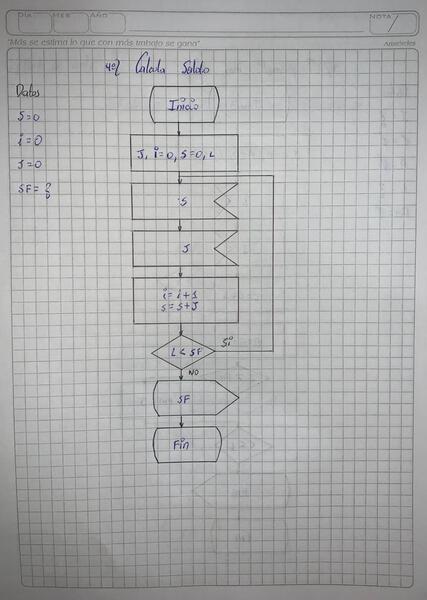 DÍA MES AÑO NOTA
"Más se estima lo que con más trabajo se gana" Aristóteles
4º) Calcula Saldo
Datos
S=0
i=0
J=0
SF= ?
Inicio
J, i=0, S=0, L
S
J
i= i+1
S= S+J
L < SF
Si
NO
SF
Fin